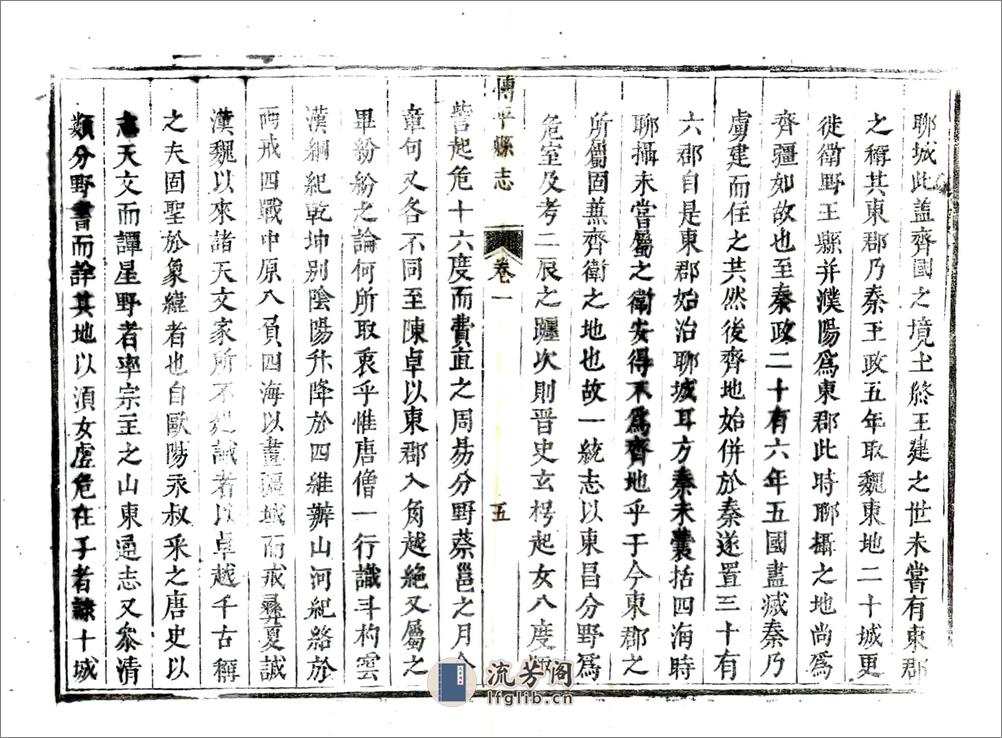 聊城此盖齊國之境土終王建之世未嘗有東郡
之稱其東郡乃秦王政五年取魏東地二十城更
徙衛野王縣并濮陽爲東郡此時聊攝之地尚爲
齊疆如故也至秦政二十有六年五國盡滅秦乃
虜建而住之共然後齊地始併於秦遂置三十有
六郡自是東郡始治聊城耳方秦未囊括四海時
聊攝未嘗屬之衛安得不爲齊地乎于今東郡之
所屬固蕪齊衛之地也故一統志以東昌分野爲
危室及考二辰之躔次則晉史玄枵起女八度
博平縣志
卷一
五
訾起危十六度而費直之周易分野蔡邕之月令
章句又各不同至陳卓以東郡入角越絶又屬之
畢紛紛之論何所取衷乎惟唐僧一行識斗杓雲
漢綱紀乾坤别陰陽升降於四維辦山河紀絡於
兩戒四戰中原八負四海以畫疆域而戒彞夏誠
漢魏以來諸天文家所不及誠者以卓越千古稱
之夫固聖於象緯者也自歐陽永叔采之唐史以
志天文而譚星野者率宗主之山東通志又叅清
類分野書而詮其地以湏女虛危在子者隷十城
流芳阁
lfglib.cn